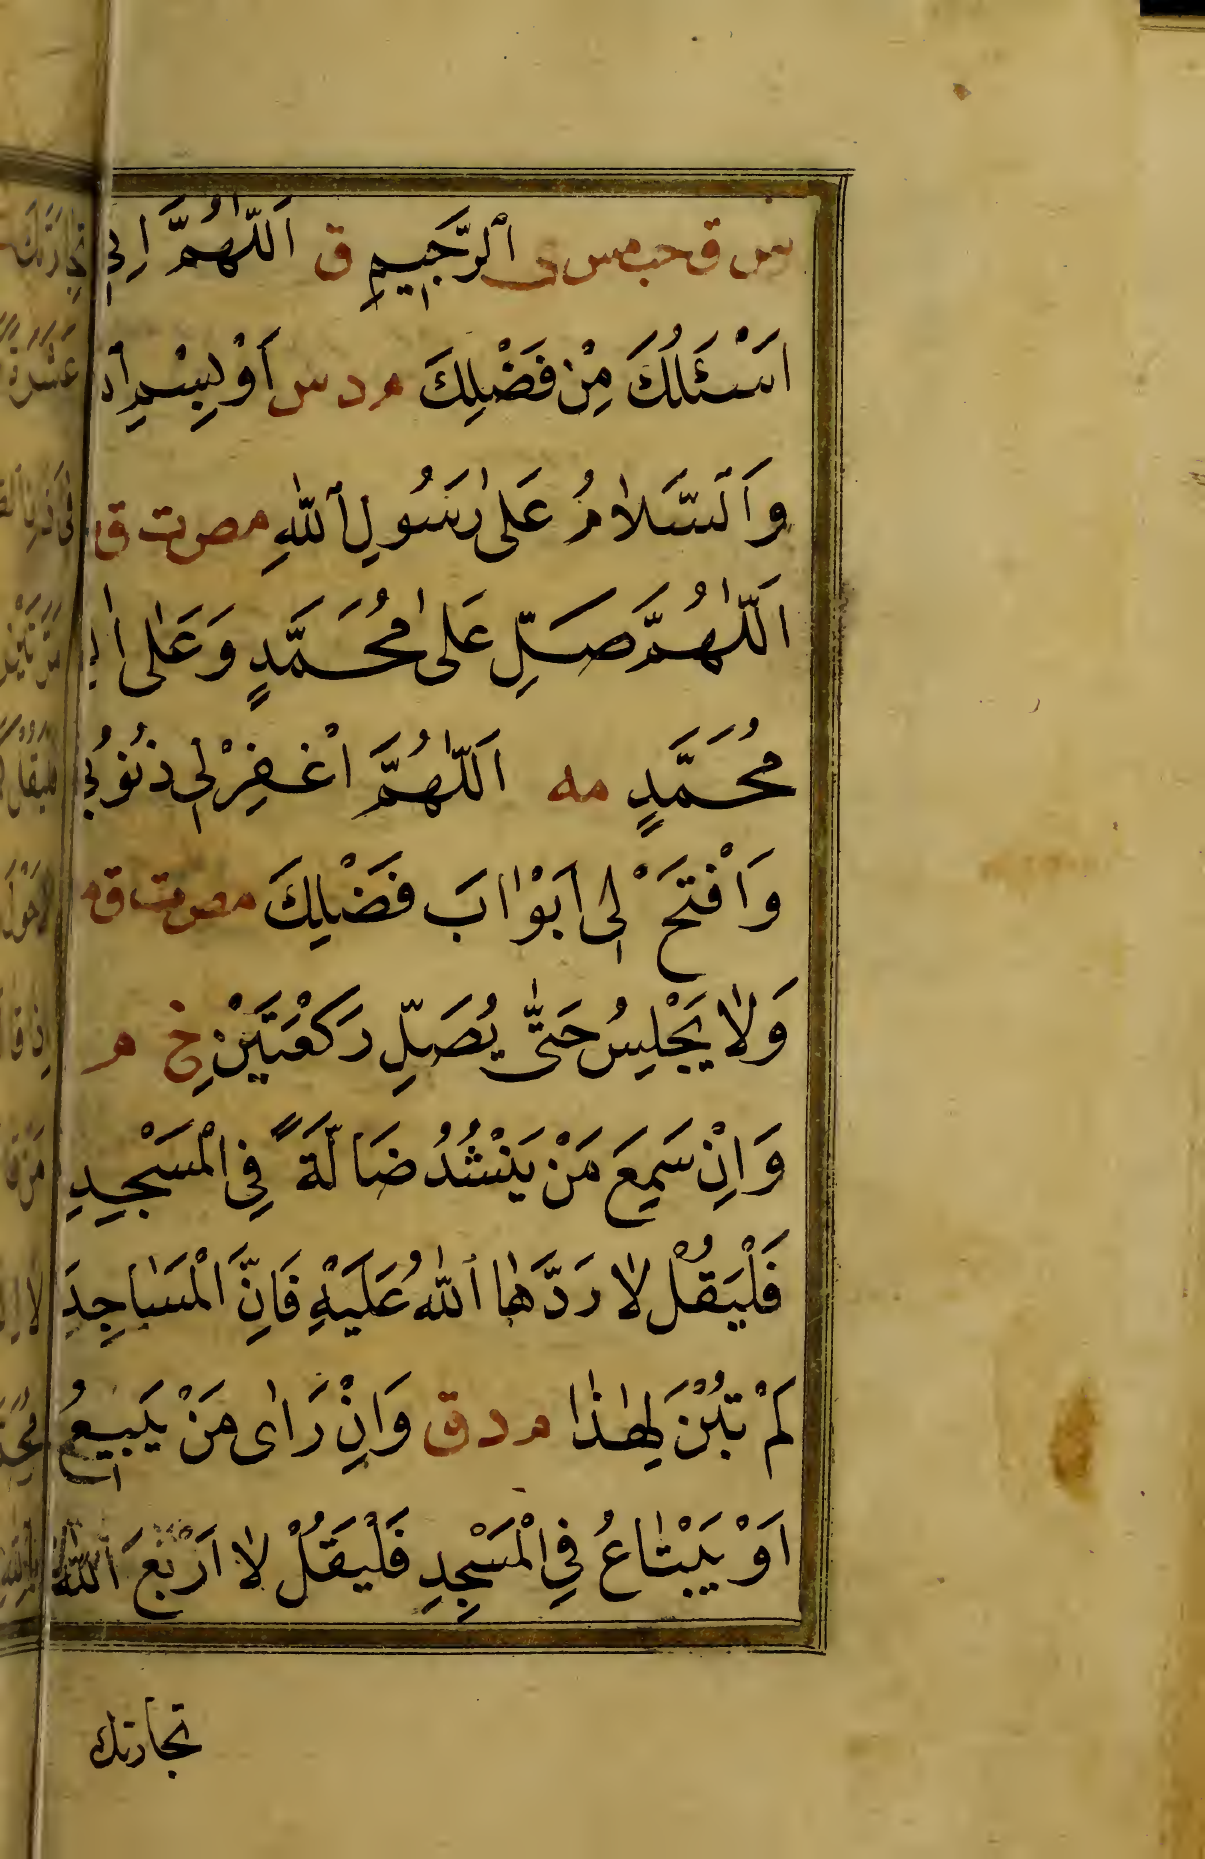 س ق حب مس ى اَلرَّجِيمِ ق اَللّٰهُمَّ اِنِّي
اَسْئَلُكَ مِنْ فَضْلِكَ م د س اَوْ بِسْمِ
وَاَلسَّلَامُ عَلٰى رَسُولِ اللّٰهِ مص ت ق
اَللّٰهُمَّ صَلِّ عَلٰى مُحَمَّدٍ وَعَلٰى اٰلِ
مُحَمَّدٍ مه اَللّٰهُمَّ اغْفِرْ لِي ذُنُوبِي
وَافْتَحْ لِي اَبْوَابَ فَضْلِكَ مص ت ق م
وَلَا يَجْلِسُ حَتّٰى يُصَلِّ رَكْعَتَيْنِ خ م
وَاِنْ سَمِعَ مَنْ يَنْشُدُ ضَالَّةً فِي الْمَسْجِدِ
فَلْيَقُلْ لَا رَدَّهَا اللّٰهُ عَلَيْهِ فَاِنَّ الْمَسَاجِدَ
لَمْ تُبْنَ لِهٰذَا م د ق وَاِنْ رَاٰى مَنْ يَبِيعُ
اَوْ يَبْتَاعُ فِي الْمَسْجِدِ فَلْيَقُلْ لَا اَرْبَحَ اللّٰهُ
تجارتك